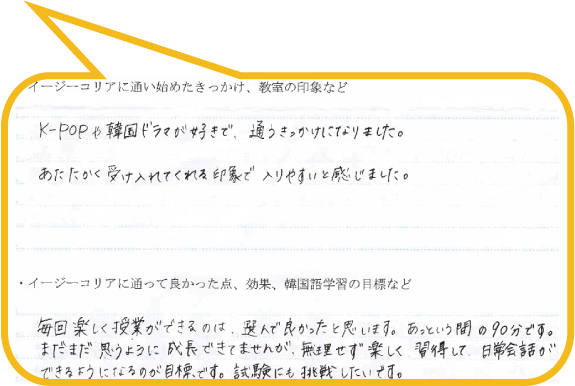 イージーコリアに通い始めたきっかけ、教室の印象など
K-POPや韓国ドラマが好きで、通うきっかけになりました。
あたたかく受け入れてくれる印象で入りやすいと感じました。
・イージーコリアに通って良かった点、効果、韓国語学習の目標など
毎回楽しく授業ができるのは、選んで良かったと思います。あっという間の90分です。
まだまだ思うように成長できてませんが、無理せず楽しく習得して、日常会話が
できるようになるのが目標です。試験にも挑戦したいです。